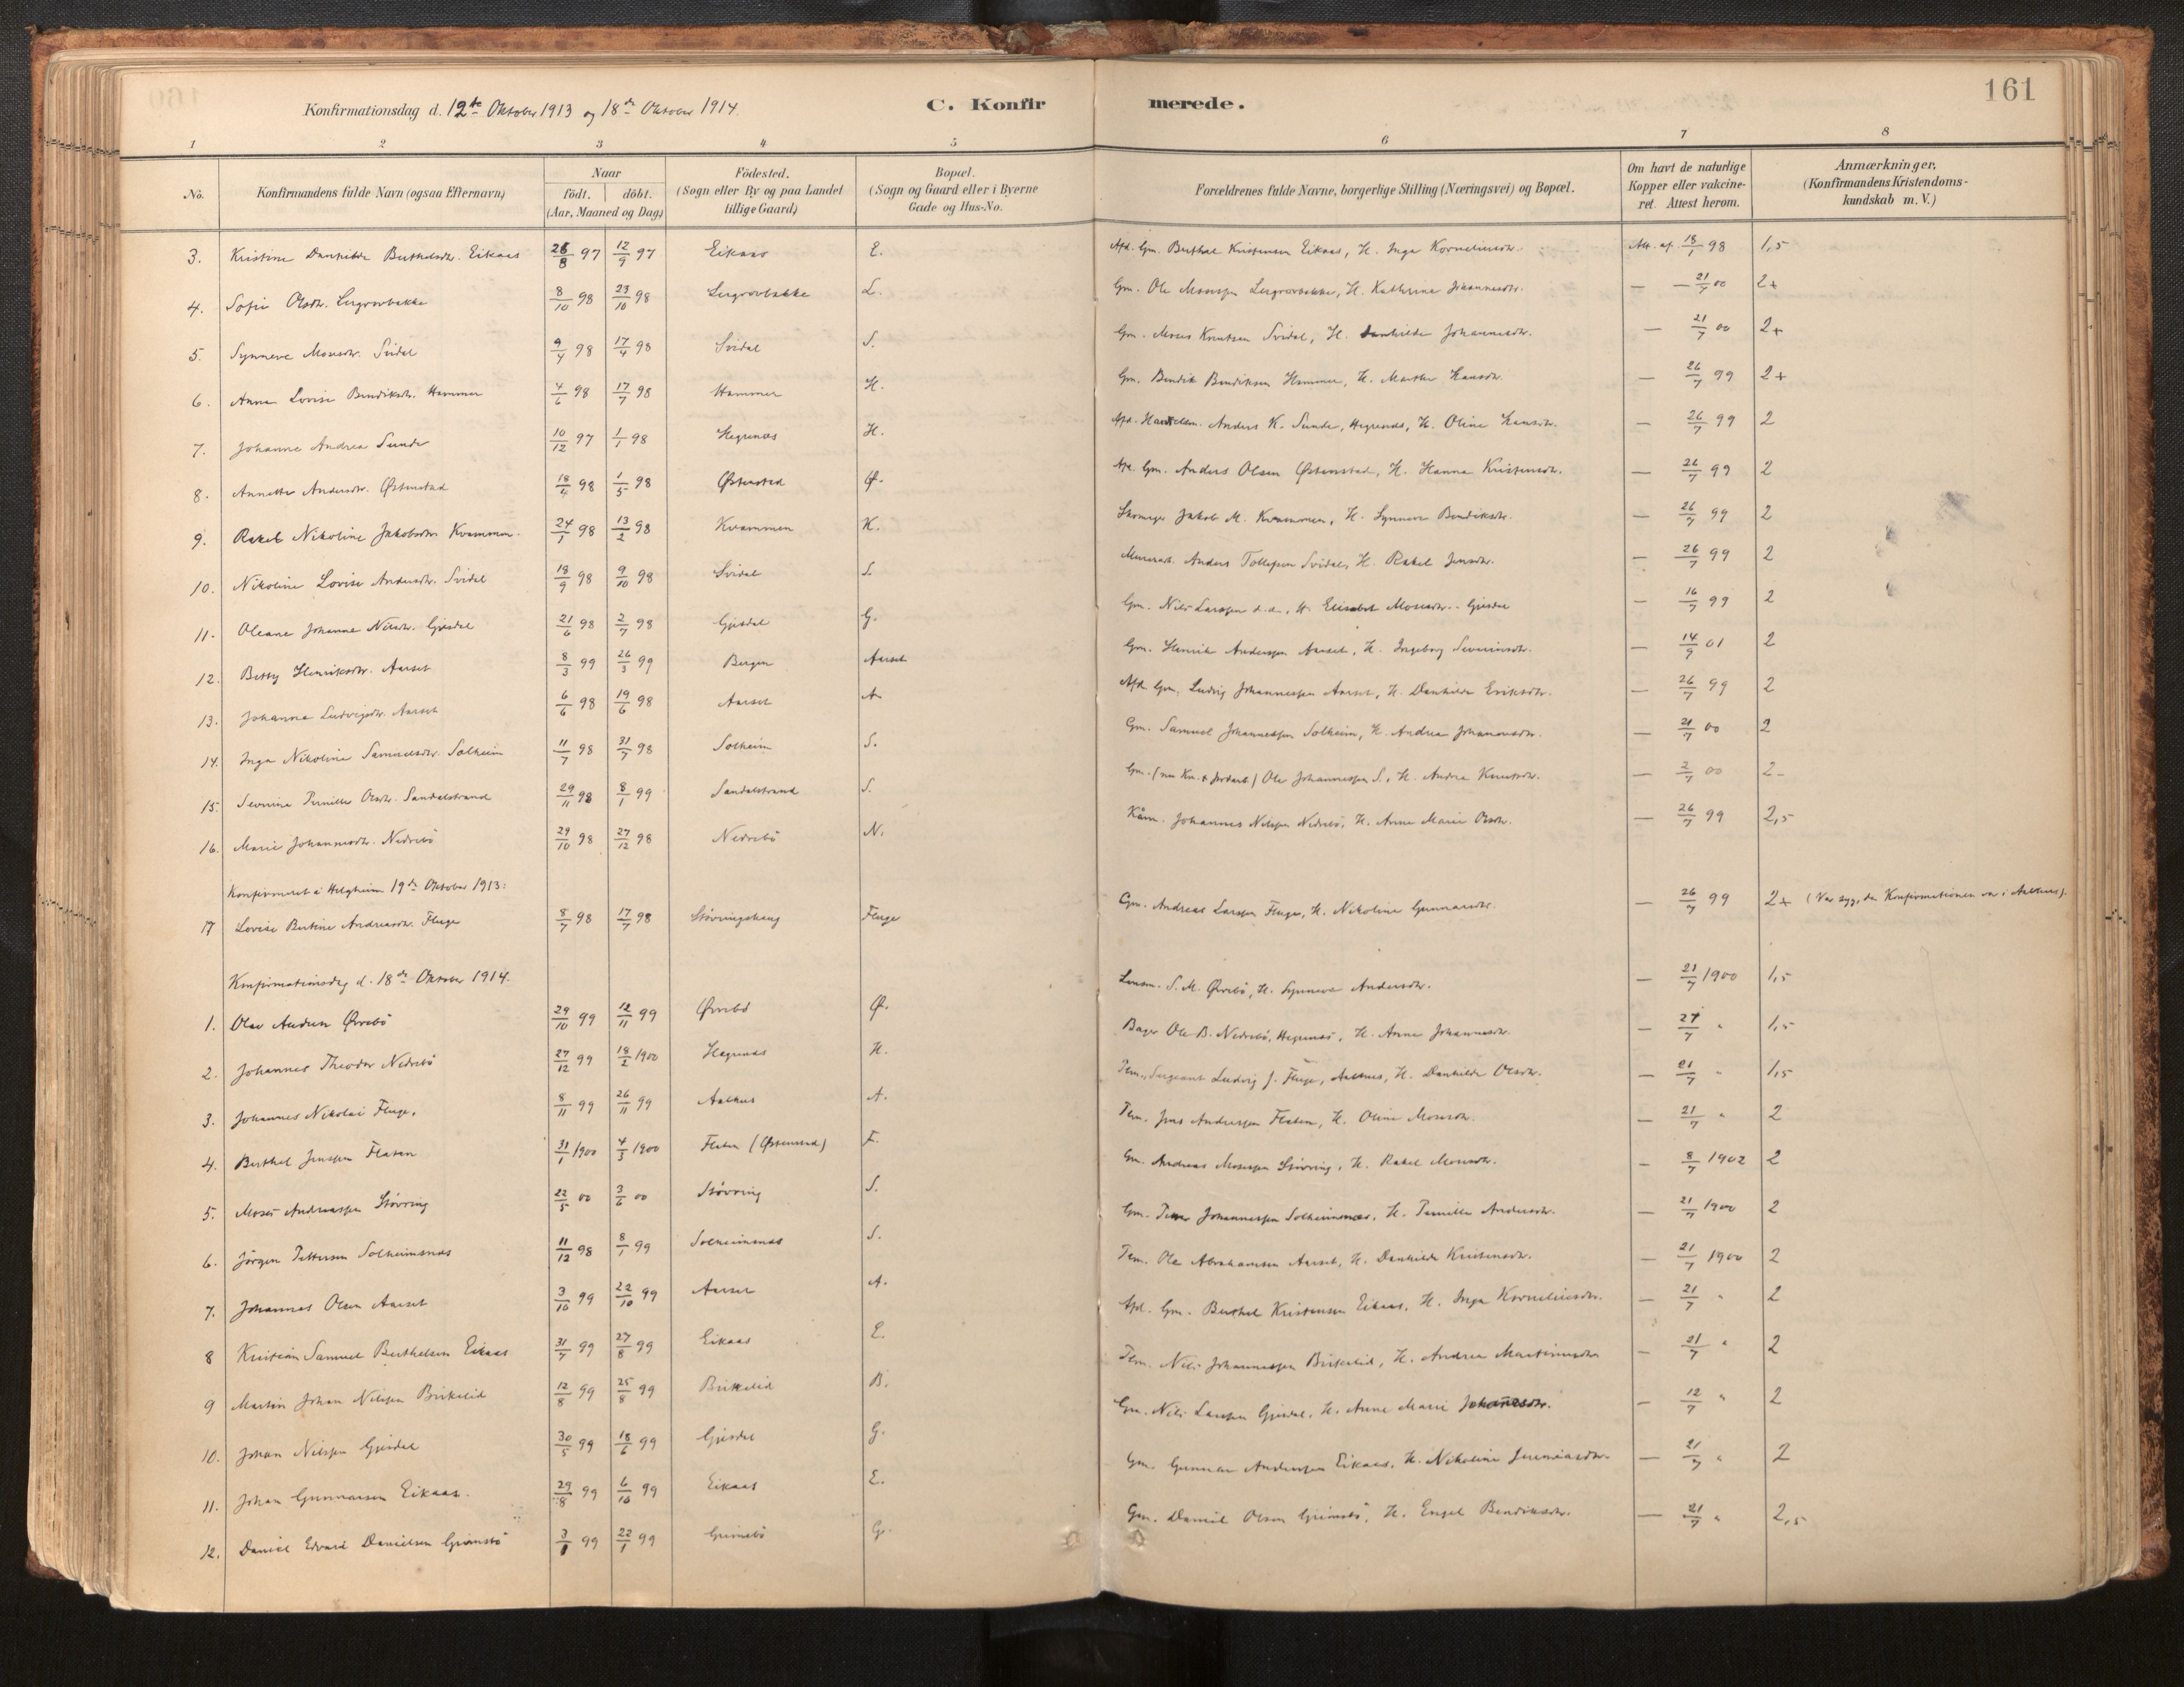 161
Konfirmationsdag d. 12te Oktober 1913 og 18de Oktober 1914.
C. Konfir merede.
1 2 3 4 5 6 7 8
No. Konfirmandens fulde Navn (ogsaa Efternavn) Naar födt. döbt. (Aar, Maaned og Dag) Födested. (Sogn eller By og paa Landet tillige Gaard) Bopæl. (Sogn og Gaard eller i Byerne Gade og Hus-No. Forældrenes fulde Navne, borgerlige Stilling (Næringsvei) og Bopæl. Om havt de naturlige Kopper eller vakcineret. Attest herom. Anmærkninger. (Konfirmandens Kristendomskundskab m. V.)
3. Kristine Danhilde Berthelsdtr. Eikaas 28/8 97 12/9 97 Eikaas E. Afd. Gm. Berthel Kristensen Eikaas, H. Inga Korneliusdtr. Att. af 18/1 98 1,5
4. Sofie Olsdtr. Lergrovbakke 8/10 98 23/10 98 Lergrovbakke L. Gm. Ole Mosessen Lergrovbakke, H. Kathrina Johannesdtr. — — 21/7 00 2+
5. Synneve Monsdtr. Svidal 9/4 98 17/4 98 Svidal S. Gm. Moses Knutsen Svidal, H. Danhilde Johannesdtr. — 21/7 00 2+
6. Anna Lovise Bendiksdtr. Hammer 4/6 98 17/7 98 Hammer H. Gm. Bendik Bendiksen Hammer, H. Marthe Hansdtr. — 26/7 99 2+
7. Johanne Andrea Sunde 10/12 97 1/1 98 Hegrenæs H. Afd. Handelsm. Anders K. Sunde, Hegrenæs, H. Oline Hansdtr. — 26/7 99 2
8. Annette Andersdtr. Østenstad 18/4 98 1/5 98 Østenstad Ø. Afd. Gm. Anders Olsen Østenstad, H. Hanna Kristensdtr. — 26/7 99 2
9. Rakel Nikoline Jakobsdtr. Kvammen. 24/1 98 13/2 98 Kvammen K. Skomager Jakob M. Kvammen, H. Synneve Bendiksdtr. — 26/7 99 2
10. Nikoline Lovise Andersdtr. Svidal 18/9 98 9/10 98 Svidal S. Murerarb. Anders Tollefsen Svidal, H. Rakel Jensdtr. — 26/7 99 2
11. Oleane Johanne Nilsdtr. Gjesdal 21/6 98 2/7 98 Gjesdal G. Gm. Nils Larssen d.æ., H. Elisabet Mosesdtr. Gjesdal — 16/7 99 2
12. Betty Henriksdtr. Aarset 8/3 99 26/3 99 Bergen Aarset Gm. Henrik Anderssen Aarset, H. Ingeborg Severinsdtr. — 14/9 01 2
13. Johanna Ludvigsdtr. Aarset 6/6 98 19/6 98 Aarset A. Afd. Gm. Ludvig Johannessen Aarset, H. Danhilde Eriksdtr. — 26/7 99 2
14. Inga Nikoline Samuelsdtr. Solheim 11/7 98 31/7 98 Solheim S. Gm. Samuel Johannessen Solheim, H. Andrea Johannesdtr. — 21/7 00 2
15. Severine Pernille Olsdtr. Sandalstrand 29/11 98 8/1 99 Sandalstrand S. Gm. (nu Km. & Jordarb.) Ole Johannessen S., H. Andrea Knutsdtr. — 2/7 00 2-
16. Marie Johannesdtr. Nedrebö 29/10 98 27/12 98 Nedrebö N. Kårm. Johannes Nilssen Nedrebö, H. Anne Marie Olsdtr. — 26/7 99 2,5
Konfirmeret i Helgheim 19de Oktober 1913:
17 Lovise Bertine Andreasdtr. Fluge 8/7 98 17/7 98 Støvringshaug Fluge Gm. Andreas Larssen Fluge, H. Nikolina Gunnarsdtr. — 26/7 99 2+ (Var syg, da Konfirmationen var i Aalhus).
Konfirmationsdag d. 18de Oktober 1914.
1. Olav Andreas Ørrebö 29/10 99 12/11 99 Ørrebö Ø. Lensm. S. M. Ørrebö, H. Synneve Andersdtr. — 21/7 1900 1,5
2. Johannes Theodor Nedrebö 27/12 99 18/2 1900 Hegrenæs H. Bager Ole B. Nedrebö, Hegrenæs, H. Anne Johannesdtr. — 27/7 " 1,5
3. Johannes Nikolai Fluge. 8/11 99 26/11 99 Aalhus A. Plm., Sergeant Ludvig J. Fluge, Aalhus, H. Danhilde Olsdtr. — 21/7 " 1,5
4. Berthel Jenssen Flaten 31/1 1900 4/3 1900 Flaten (Østenstad) F. Plm. Jens Anderssen Flaten, H. Oline Monsdtr. — 21/7 " 2
5. Moses Andreassen Støvring 22/5 00 3/6 00 Støvring S. Gm. Andreas Mosessen Støvring, H. Rakel Monsdtr. — 8/7 1902 2
6. Jörgen Pettersen Solheimsnæs 11/12 98 8/1 99 Solheimsnæs S. Gm. Petter Johannessen Solheimsnæs, H. Pernille Andersdtr. — 21/7 1900 2
7. Johannes Olsen Aarset 3/10 99 22/10 99 Aarset A. Plm. Ole Abrahamsen Aarset, H. Danhilde Kristensdtr. — 21/7 1900 2
8 Kristian Samuel Berthelsen Eikaas 31/7 99 27/8 99 Eikaas E. Afd. Gm. Berthel Kristensen Eikaas, H. Inga Korneliusdtr. — 21/7 " 2
9 Martin Johan Nilssen Birkelid 12/8 99 25/8 99 Birkelid B. Plm. Nils Johannessen Birkelid, H. Andrea Martinusdtr. — 21/7 " 2
10. Johan Nilssen Gjesdal 30/5 99 18/6 99 Gjesdal G. Gm. Nils Larssen Gjesdal, H. Anne Marie Johannesdtr. — 12/7 " 2
11. Johan Gunnarsen Eikaas. 29/8 99 6/10 99 Eikaas E. Gm. Gunnar Anderssen Eikaas, H. Nikoline Jeremiasdtr. — 21/7 " 2
12. Daniel Edvard Danielsen Grimsbö 3/1 99 22/1 99 Grimsbö G. Gm. Daniel Olsen Grimsbö, H. Engel Bendiksdtr. — 21/7 " 2,5